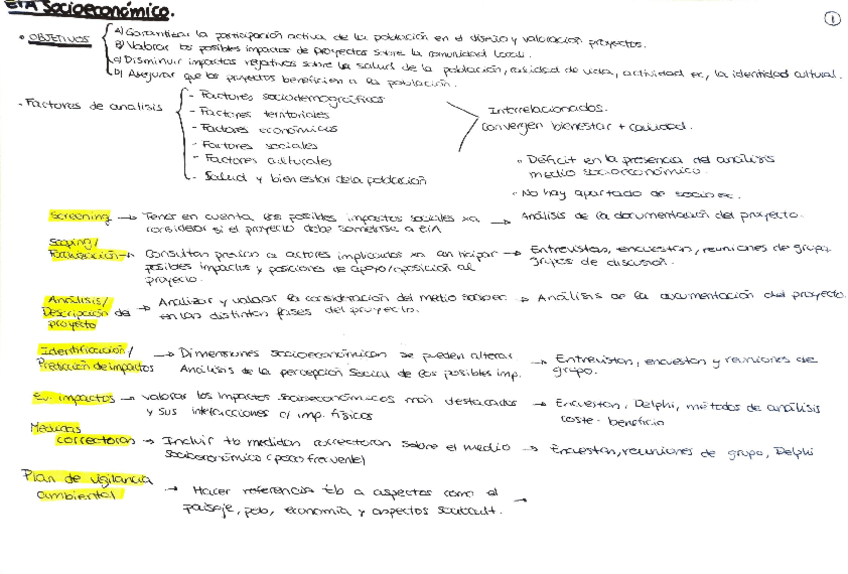 EIA Socioeconómico.
1
• OBJETIVOS
A) Garantizar la participación activa de la población en el diseño y valoración proyectos.
B) Valorar los posibles impactos de proyectos sobre la comunidad local.
C) Disminuir impactos negativos sobre la salud de la población, calidad de vida, actividad ec, la identidad cultural.
D) Asegurar que los proyectos beneficien a la población.
- Factores de analisis
- Factores sociodemográficos
- Factores territoriales
- Factores económicos
- Factores sociales
- Factores culturales
- Salud y bienestar de la población
Interrelacionados.
Convergen bienestar + calidad.
• Déficit en la presencia del análisis
medio socioeconómico.
• No hay apartado de socioec.
Screening → Tener en cuenta los posibles impactos sociales xa → Análisis de la documentación del proyecto.
considerar si el proyecto debe someterse a EIA
Scoping/
→ Consultas previas a actores implicados xa anticipar → Entrevistas, encuestas, reuniones de grupo,
posibles impactos y posiciones de apoyo/oposición al
grupos de discusión.
proyecto.
Análisis/
Descripción del
proyecto
→ Analizar y valorar la consideración del medio socioec → Análisis de la documentación del proyecto.
en las distintas fases del proyecto.
Identificación/
Predicción de impactos
→ Dimensiones socioeconómicas se pueden alterar
Análisis de la percepción social de los posibles imp.
→ Entrevistas, encuestas y reuniones de
grupo.
Ev. impactos → Valorar los impactos socioeconómicos más destacados → Encuestas, Delphi, métodos de análisis
y sus interacciones c/ imp. físicos
coste-beneficio
Medidas
correctoras → Incluir tb medidas correctoras sobre el medio → Encuestas, reuniones de grupo, Delphi
socioeconómico (poco frecuente)
Plan de vigilancia
ambiental
→ Hacer referencia tb a aspectos como el →
paisaje, pob, economía y aspectos sociocult.